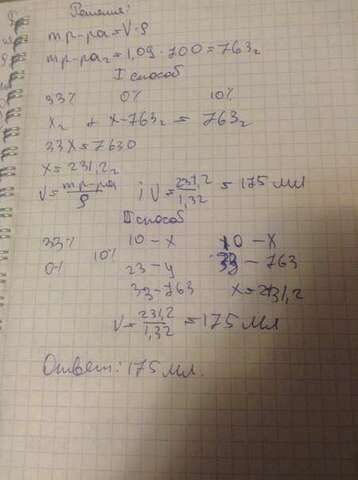 Решение:
m р-ра = V·ρ
m р-ра = 1,09 · 700 = 763г
I способ
33% 0% 10%
x г + x-763г = 763г
33x = 7630
x = 231,2г
V = m р-ра / ρ ; V = 231,2 / 1,32 = 175 мл
II способ
33% 10 - x 10 - x
10%
0% 23 - y 33 - 763
33 - 763 x = 231,2
V = 231,2 / 1,32 = 175 мл
Ответ: 175 мл.